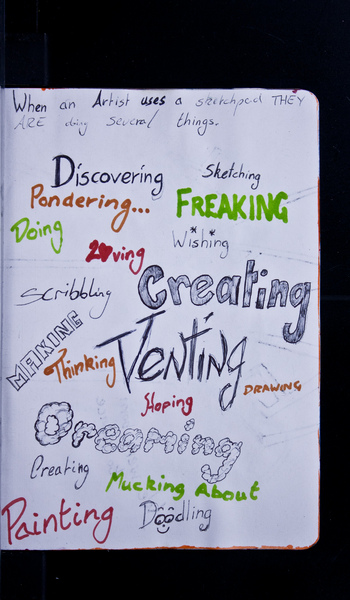 When an Artist uses a sketchpad THEY
ARE doing several things.
Discovering
Sketching
Pondering...
FREAKING
Doing
Wishing
Loving
Creating
Scribbling
MAKING
Thinking
Venting
DRAWING
Hoping
Dreaming
Creating
Mucking About
Painting
Doodling